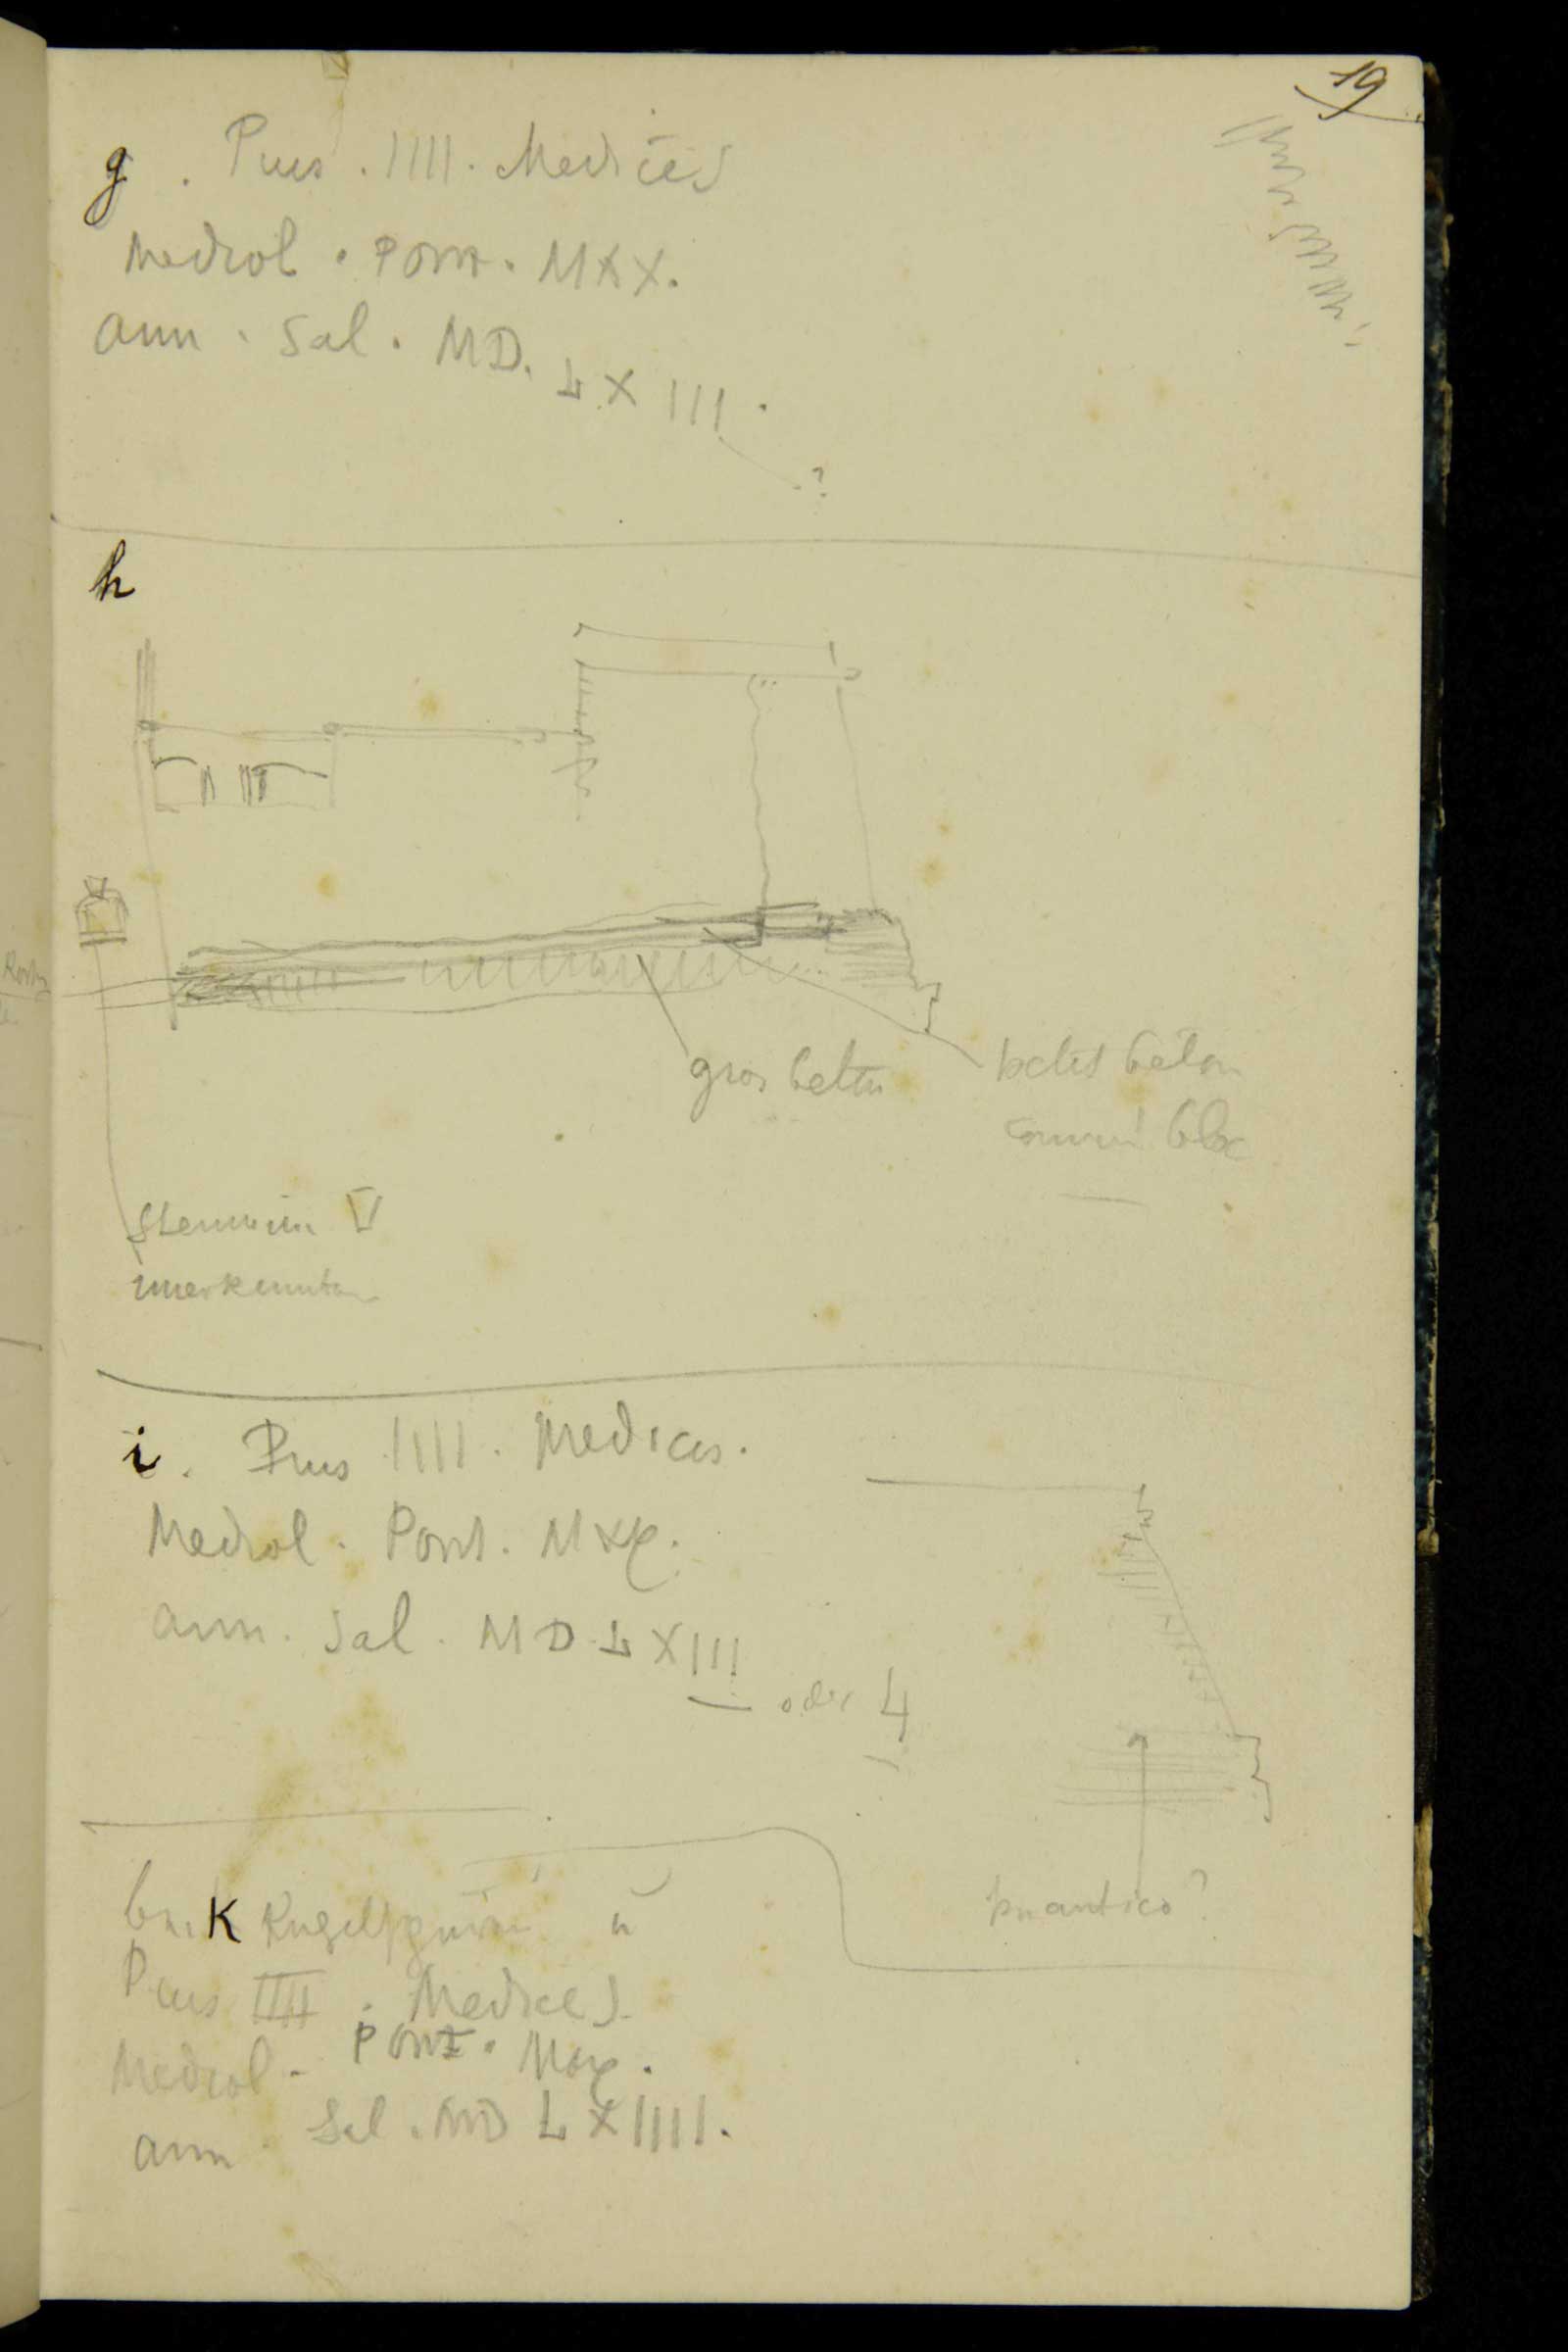 19
g . Pius . IIII . Medices
Mediol . Pont . MAX.
ann . Sal . MD. LXIII .
?
h
gros béton
petit béton
comme bloc
Stemma V
unerkennbar
i . Pius IIII . Medices .
Mediol . Pont . Max .
ann . Sal . MD LXIII
oder 4
più antico ?
K Kugelspuren u
Pius IIII . Medices .
Mediol . Pont . Max .
ann Sal . MD LXIIII .